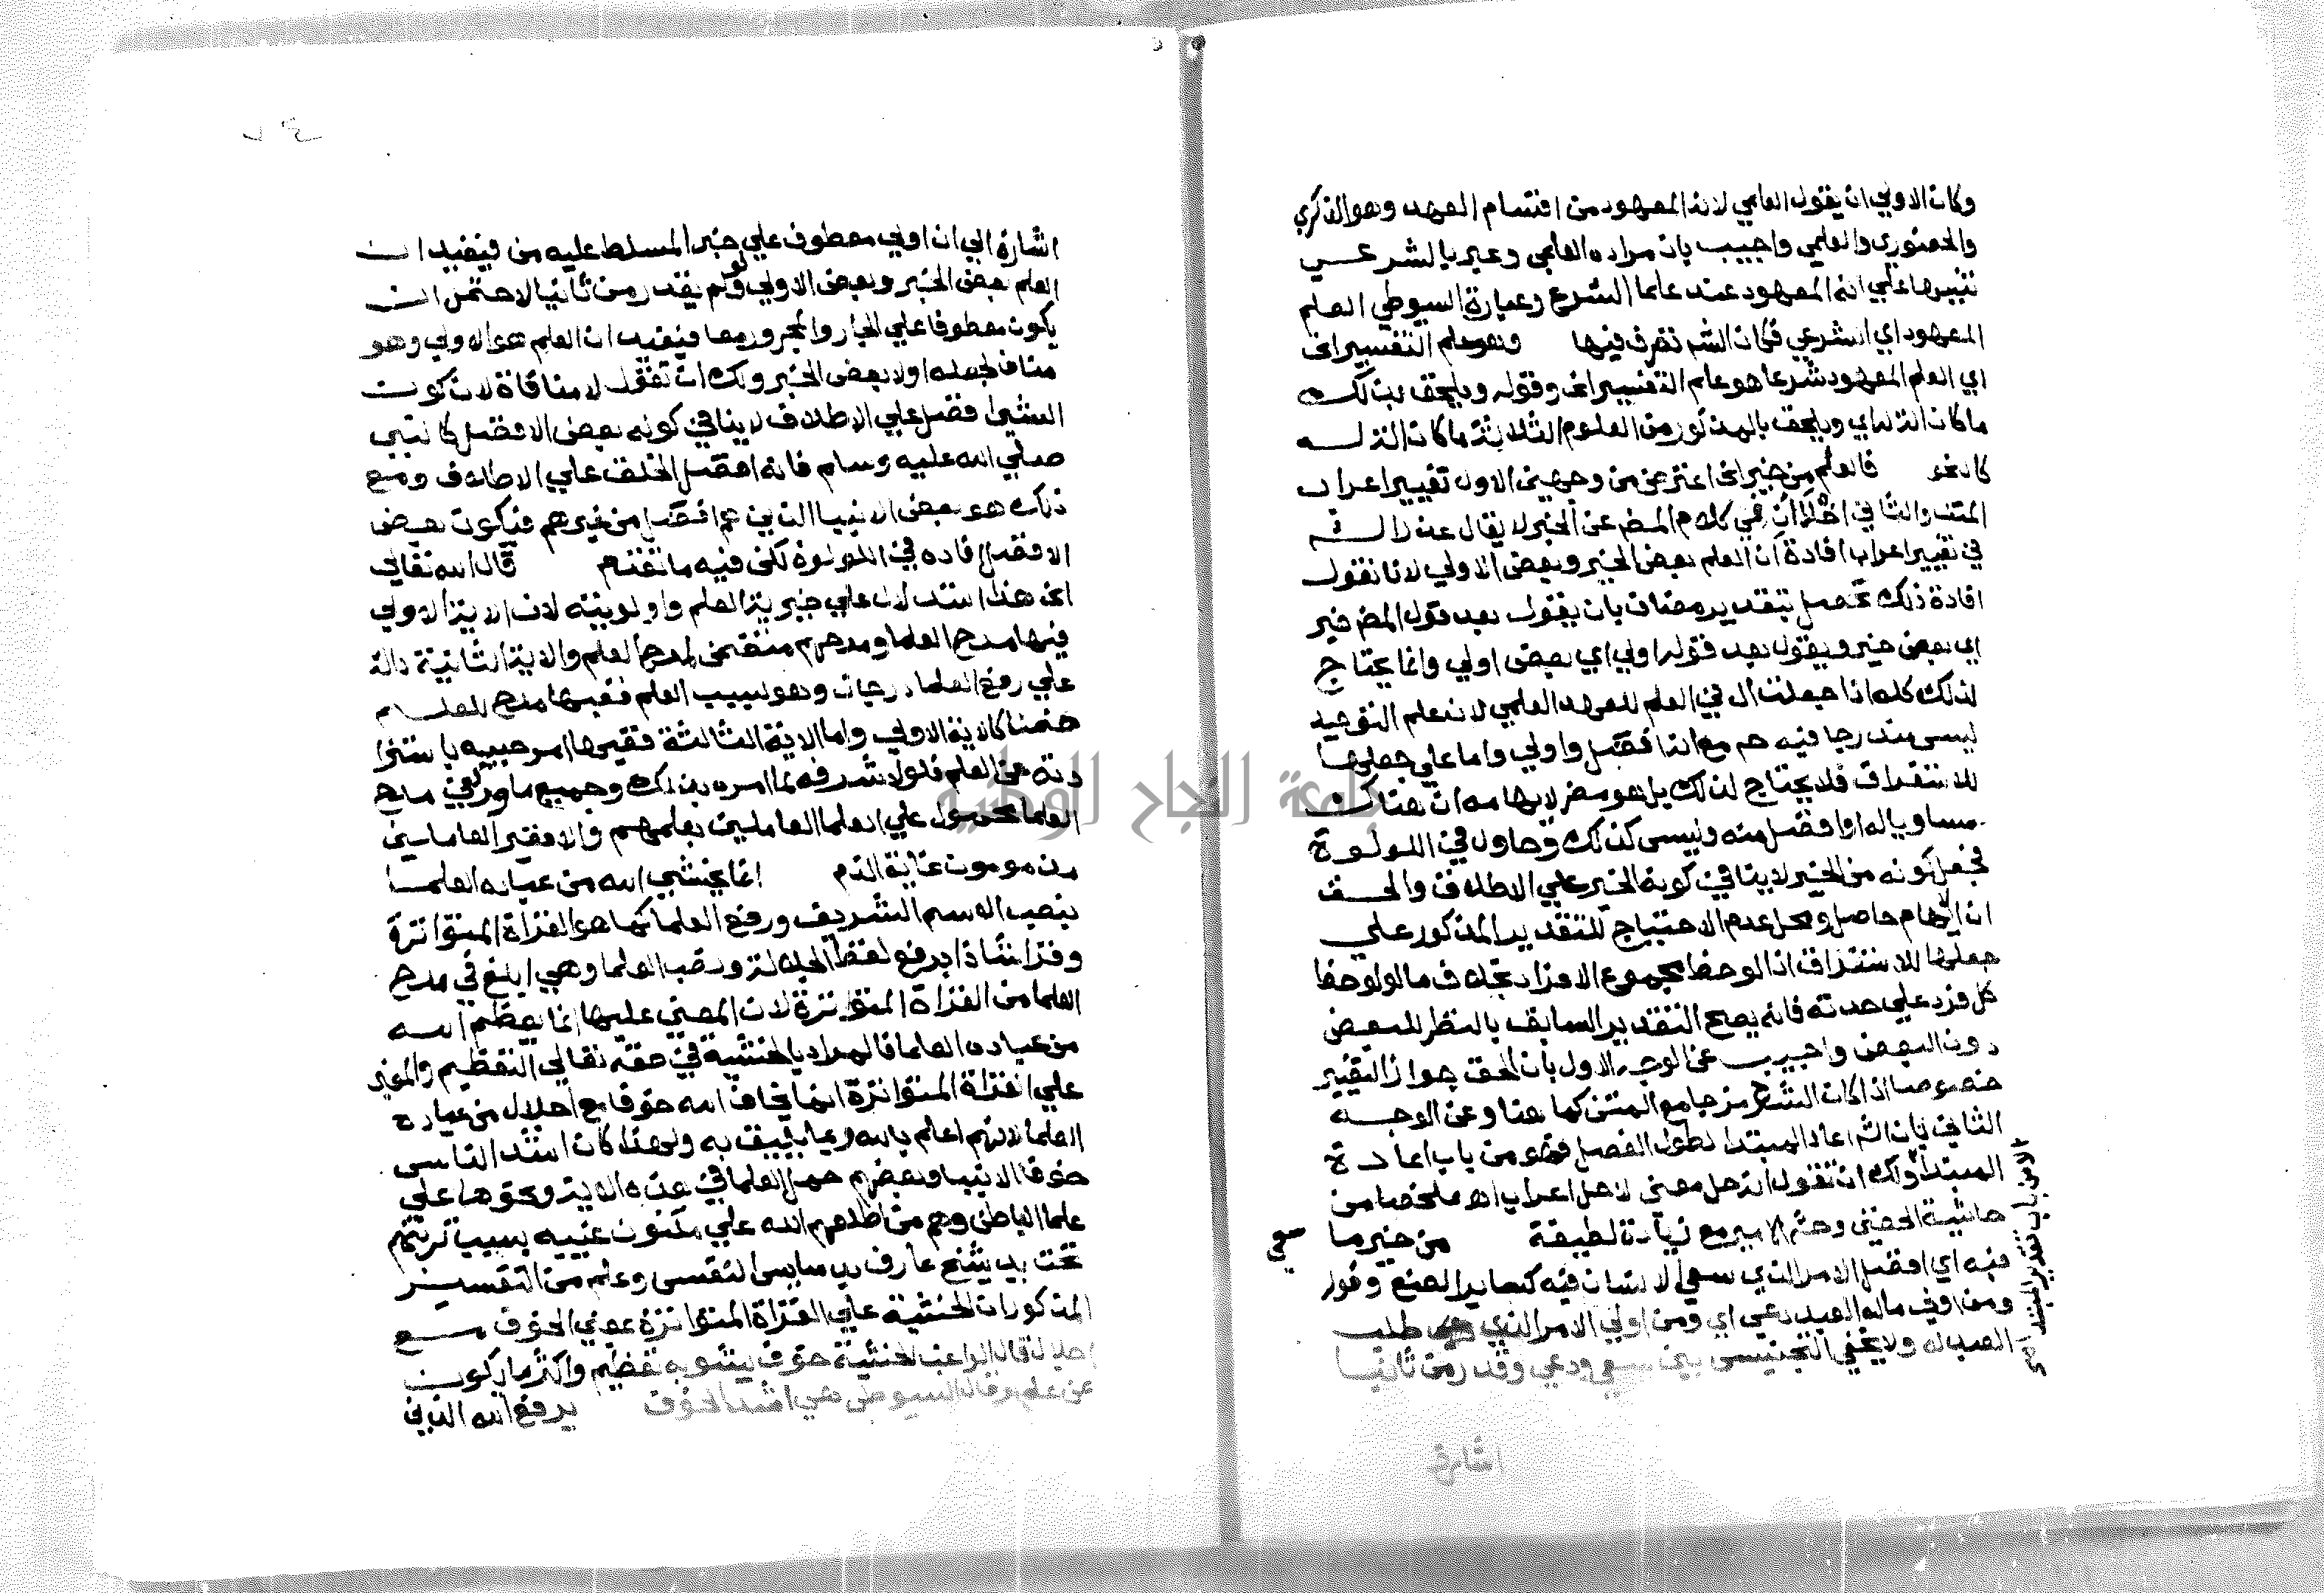 وكان الاولي ان يقول العلمي لانه المعهود من اقسام العهد وهو الذكري
والحضوري والعلمي واجيب بان مراده العلمي وعبر بالشرعي
تنبيها علي انه المعهود عند علما الشرع وعبارة السيوطي العلم
المعهود اي الشرعي فكان الش تصرف فيها وهو علم التفسير الخ
اي العلم المعهود شرعا هو علم التفسير الخ وقوله ويلحق بذلك
ما كان الة له اي ويلحق بالمذكور من العلوم الثلاثة ما كان الة له
كالنحو فالعلم من خير الخ اعترض من وجهين الاول تغيير اعراب
المتن والثاني اخلا ان في كلام المص عن الخبر لا يقال عذر الش
في تغيير اعراب افادة ان العلم بعض الخير وبعض الاولي لانا نقول
افادة ذلك تحصل بتقدير مضاف بان يقول بعد قول المص خير
اي بعض خير ويقول بعد قوله اولي اي بعض اولي وانما يحتاج
لذلك كله اذا جعلت ال في العلم للعهد العلمي لان علم التوحيد
ليس مندرجا فيه ح مع انه افضل واولي واما علي جعلها
للاستغراق فلا يحتاج لذلك بل هو مضر لايهامه ان هناك
مساويا له او افضل منه وليس كذلك وحاول في اللولوة
فجعل كونه من الخير لا ينافي كونه الخير علي الاطلاق والحق
ان الايهام حاصل ومحل عدم الاحتياج للتقدير المذكور علي
جعلها للاستغراق اذا لوحظ مجموع الافراد بخلاف ما لو لوحظ
كل فرد علي حدته فانه يصح التقدير السابق بالنظر للبعض
دون البعض واجيب عن الوجه الاول بان الحق جواز التغيير
خصوصا اذا كان الشرح مزجا مع المتن كما هنا وعن الوجه
الثاني بان الش اعاد المبتدا لطول الفصل فهو من باب اعادة
المبتدا ولك ان تقول انه حل معني لا حل اعراب اه ملخصا من
حاشية الحفني وحش الامير مع زيادة لطيفة من خير ما سعي
فيه اي افضل الامر الذي سعي الانسان فيه كتعابير الصنع وقوله
ومن اولي ماله العبد دعي اي ومن اولي الامر الذي طلب
العبد له ولا يخفي التجنيس بين سعي ودعي وقدر من ثانيا
اشارة
لا من باب تقدير المبتدا
اشارة الي ان اولي معطوف علي خبر المسلط عليه من فيفيد ان
العلم بعض الخير وبعض الاولي ولو لم يقدر من ثانيا لاحتمل ان
يكون معطوفا علي الجار والمجرور معا فيفيد ان العلم هو الاولي وهو
مناف لجعله اولا بعض الخير ولك ان تقول لا منافاة لان كون
الشيئ افضل علي الاطلاق لا ينافي كونه بعض الافضل كالنبي
صلي الله عليه وسلم فانه افضل الخلق علي الاطلاق ومع
ذلك هو بعض الانبيا الذين هم افضل من غيرهم فيكون بعض
الافضل افاده في اللولوة لكن فيه ما تقدم قال الله تعالي
الخ هذا استدلال علي خيرية العلم واولويته لان الاية الاولي
فيها مدح العلما ومدحهم مقتض لمدح العلم والاية الثانية دالة
علي رفع العلما درجات وهو بسبب العلم ففيها مدح للعلم
ضمنا كالاية الاولي واما الاية الثالثة ففيها امر حبيبه باستزا
دته من العلم فلولا شرفه لما امره بذلك وجميع ما ورد في مدح
العلما محمول علي العلما العاملين بعلمهم والا فغير العاملين
مذمومون غاية الذم انما يخشي الله من عباده العلما
بنصب الاسم الشريف ورفع العلما كما هو القراة المتواترة
وقرا شاذا برفع لفظ الجلالة ونصب العلما وهي ابلغ في مدح
العلما من القراة المتواترة لان المعني عليها انما يعظم الله
من عباده العلما فالمراد بالخشية في حقه تعالي التعظيم والمعني
علي القراة المتواترة انما يخاف الله خوفا مع اجلال من عباده
العلما لانهم اعلم بالله وبما يليق به ولهذا كان اشد الناس
خوفا الانبيا وبعضهم حمل العلما في هذه الاية ونحوها علي
علما الباطن وهم من اطلعهم الله علي مكنون غيبه بسبب تربيتهم
تحت يد شيخ عارف بدسايس النفس وعلم من التفسير
المذكور ان الخشية علي القراة المتواترة بمعني الخوف مع
اجلال قال الراغب الخشية خوف يشوبه تعظيم واكثر ما يكون
عن علم وقال السيوطي هي اشد الخوف يرفع الله الذين
جامعة النجاح الوطنية